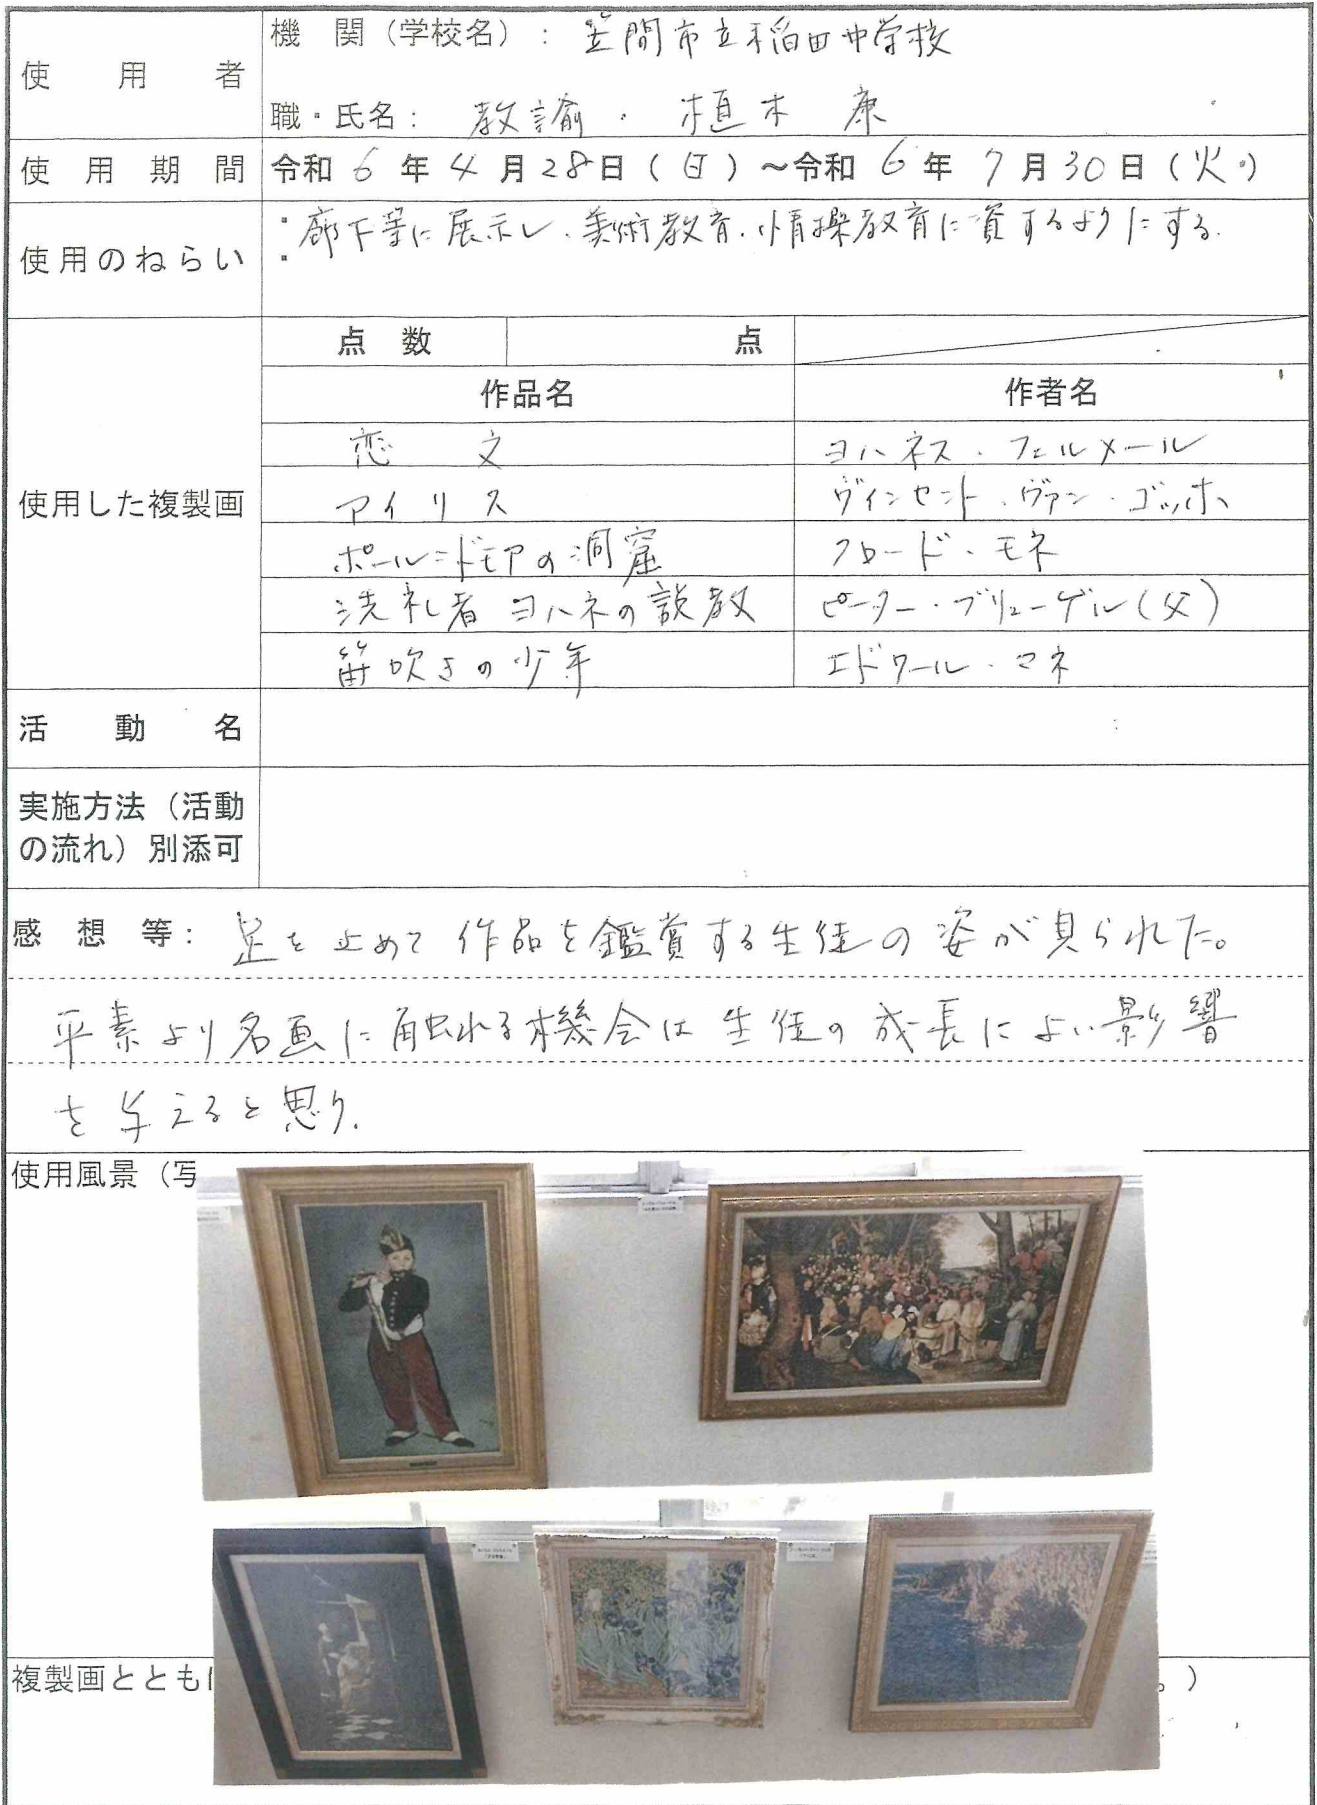 使用者
機関（学校名）：笠間市立稲田中学校
職・氏名：教諭・植木 康
使用期間 令和6年4月28日（日）～令和6年7月30日（火）
使用のねらい
廊下等に展示し、美術教育、情操教育に資するようにする。
使用した複製画
点数 点
作品名 作者名
恋文 ヨハネス・フェルメール
アイリス ヴィンセント・ヴァン・ゴッホ
ポール＝ドモアの洞窟 クロード・モネ
洗礼者ヨハネの説教 ピーター・ブリューゲル（父）
笛吹きの少年 エドワール・マネ
活動名
実施方法（活動
の流れ）別添可
感想等：足を止めて作品を鑑賞する生徒の姿が見られた。
平素より名画に触れる機会は生徒の成長によい影響
を与えると思う。
使用風景（写
複製画ととも
。）